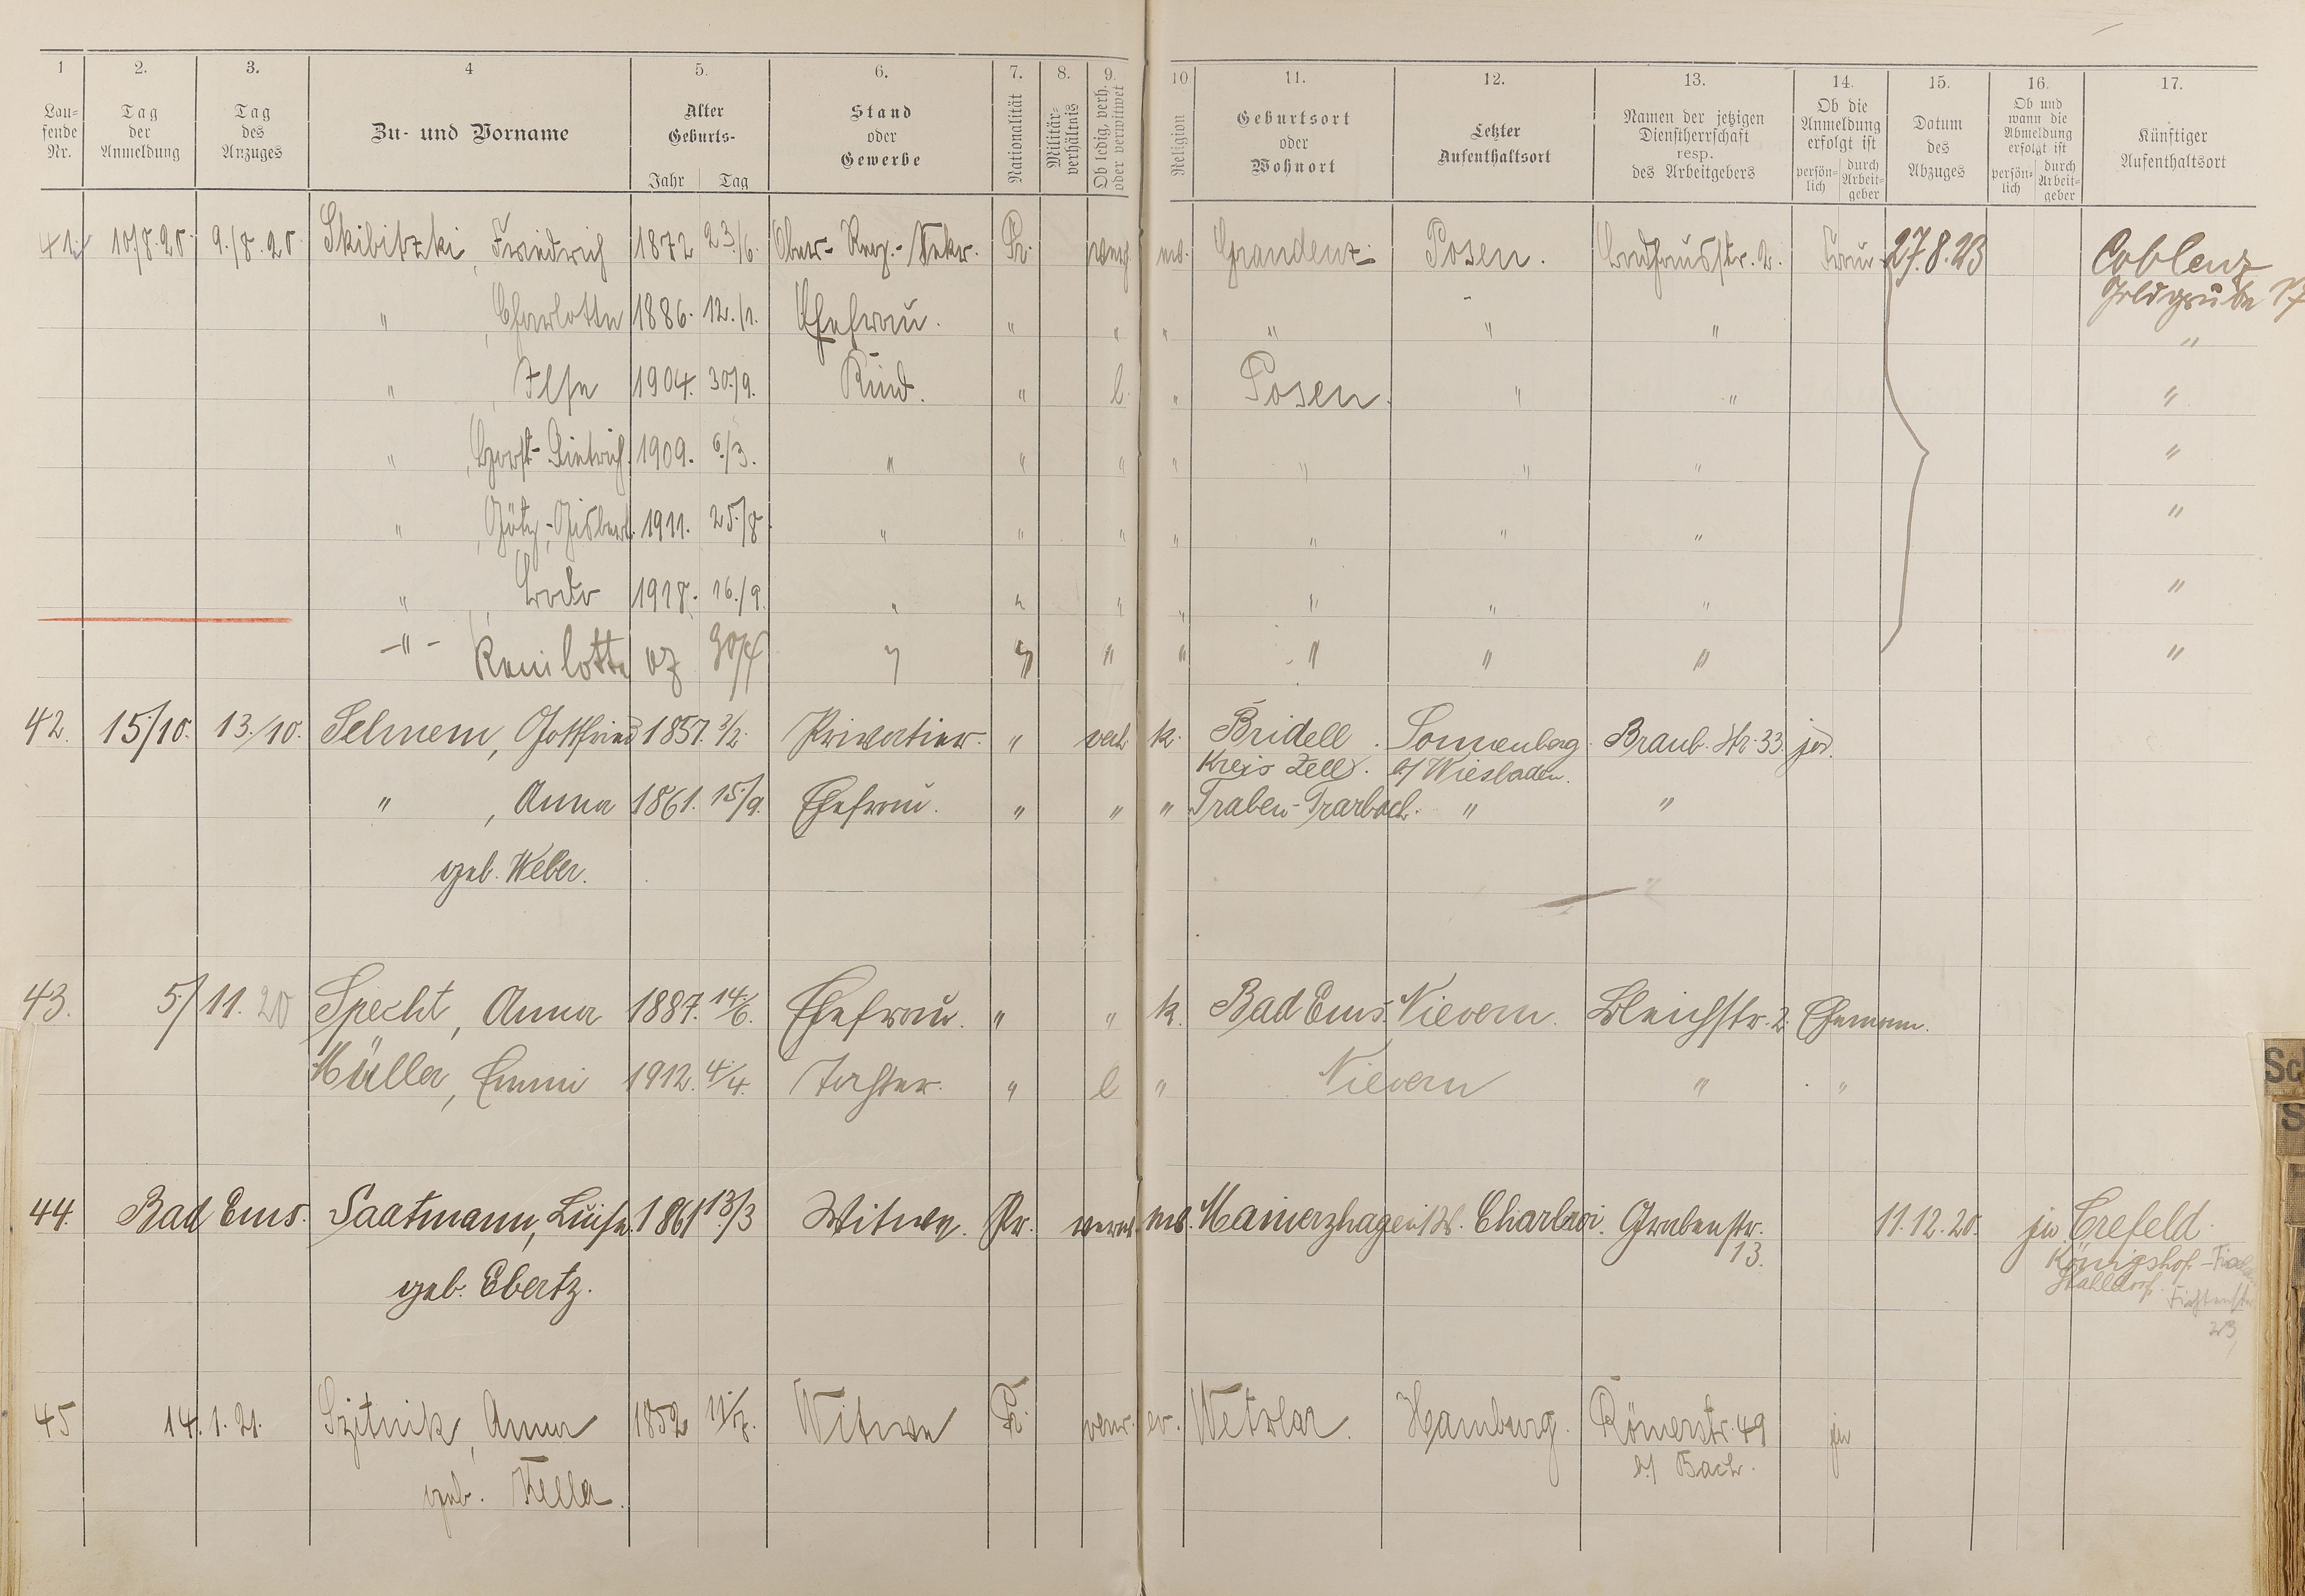 1 2. 3. 4 5. 6. 7. 8. 9. 10 11. 12. 13. 14. 15. 16. 17.
Lau-
fende
Nr.
Tag
der
Anmeldung
Tag
des
Anzuges
Zu- und Vorname
Alter
Geburts-
Jahr Tag
Stand
oder
Gewerbe
Nationalität
Militär-
verhältnis
Ob ledig, verh.
oder verwitwet
Religion
Geburtsort
oder
Wohnort
Letzter
Aufenthaltsort
Namen der jetzigen
Dienstherrschaft
resp.
des Arbeitgebers
Ob die
Anmeldung
erfolgt ist
persön-
lich
durch
Arbeit-
geber
Datum
des
Abzuges
Ob und
wann die
Abmeldung
erfolgt ist
persön-
lich
durch
Arbeit-
geber
Künftiger
Aufenthaltsort
41. 10/8.20. 9./8.20. Skibitzki, Friedrich 1872 23./6. Ober-Reg.-Sekr. Pr. verh. ev. Graudenz Posen. Badhausstr. 2. Frau 27.8.23 Coblenz
Goldgrube 17
" , Charlotte 1886. 12./1. Ehefrau. " " " " " " "
" , Ilse 1904. 30./9. Kind. " l. " Posen. " " "
" , Horst-Dietrich. 1909. 6./3. " " " " " " " "
" , Götz-Gisbert. 1911. 25./8. " " " " " " " "
" , Bodo 1918. 16./9. " " " " " " " "
-"- 30/4 " " " " " " " "
42. 15./10. 13./10. Selmem, Gottfried 1857. 3/2. Privatier. " verh. k. Bridell. Sonnenberg Braub. Str. 33. ja.
Kreis Zell. b/ Wiesbaden.
" , Anna 1861. 15./9. Ehefrau. " " " Traben-Trarbach. " "
geb. Weber.
43. 5./11. 20 Specht, Anna 1887. 14./6. Ehefrau. " " k. Bad Ems. Nievern. Bleichstr. 2. Ehemann.
Müller, Emmi 1912. 4./4. Tochter. " l " Nievern " "
44. Bad Ems. Saatmann, Luise. 1861 13./3 Witwe. Pr. verw. ev. Mainerzhagen Charleroi. Grabenstr. 11.12.20. ja Crefeld.
13.
Königshof-
Stahldorf.
geb. Ebertz. Fichtenstr.
23,
45 14.1.21. Szitnik, Anna 1852 11./7. Witwe Pr. verw. ev. Wetzlar. Hamburg. Römerstr. 49 ja
b/ Bach.
geb. Keller.